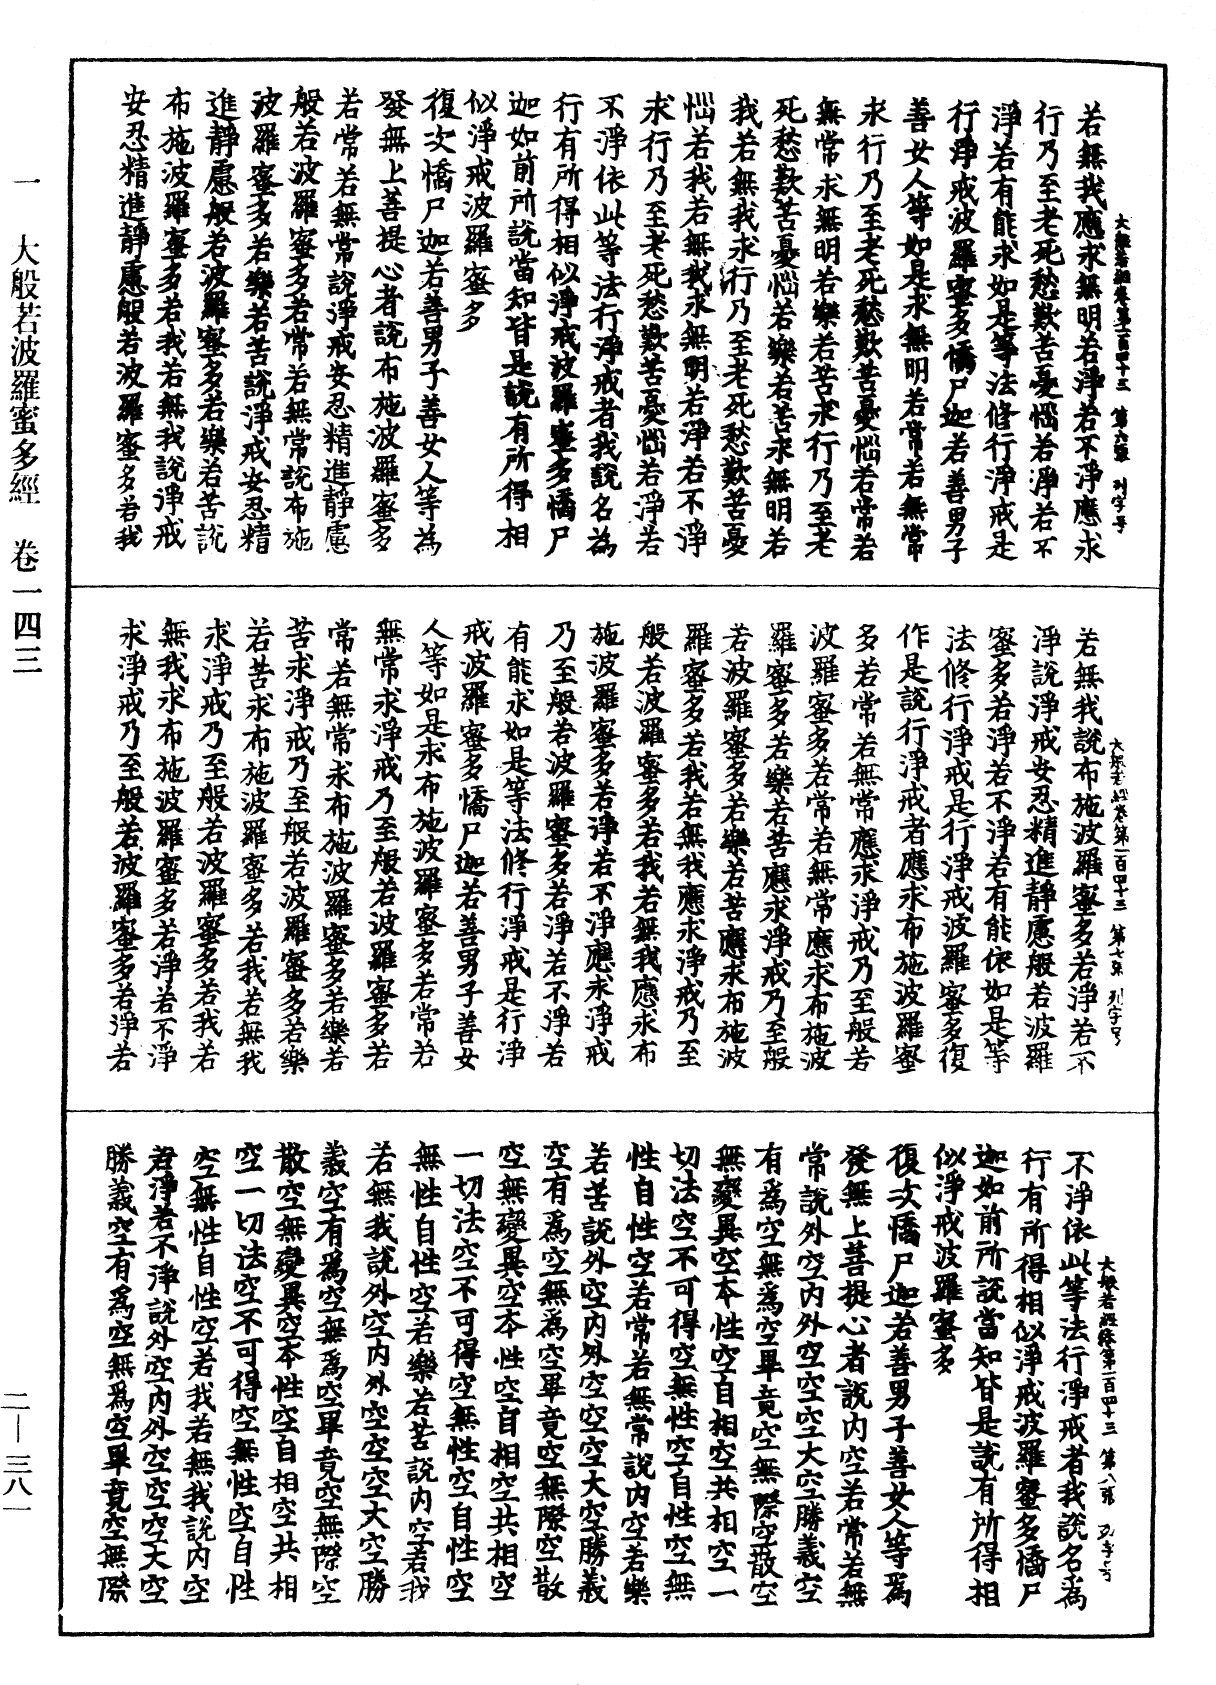 若無我應求無明若淨若不淨應求
行乃至老死愁歎苦憂惱若淨若不
淨若有能求如是等法修行淨戒是
行淨戒波羅蜜多憍尸迦若善男子
善女人等如是求無明若常若無常
求行乃至老死愁歎苦憂惱若常若
無常求無明若樂若苦求行乃至老
死愁歎苦憂惱若樂若苦求無明若
我若無我求行乃至老死愁歎苦憂
惱若我若無我求無明若淨若不淨
求行乃至老死愁歎苦憂惱若淨若
不淨依此等法行淨戒者我說名為
行有所得相似淨戒波羅蜜多憍尸
迦如前所說當知皆是說有所得相
似淨戒波羅蜜多
復次憍尸迦若善男子善女人等為
發無上菩提心者說布施波羅蜜多
若常若無常說淨戒安忍精進靜慮
般若波羅蜜多若常若無常說布施
波羅蜜多若樂若苦說淨戒安忍精
進靜慮般若波羅蜜多若樂若苦說
布施波羅蜜多若我若無我說淨戒
安忍精進靜慮般若波羅蜜多若我
大般若經卷第一百四十三 第六張 列字号
若無我說布施波羅蜜多若淨若不
淨說淨戒安忍精進靜慮般若波羅
蜜多若淨若不淨若有能依如是等
法修行淨戒是行淨戒波羅蜜多復
作是說行淨戒者應求布施波羅蜜
多若常若無常應求淨戒乃至般若
波羅蜜多若常若無常應求布施波
羅蜜多若樂若苦應求淨戒乃至般
若波羅蜜多若樂若苦應求布施波
羅蜜多若我若無我應求淨戒乃至
般若波羅蜜多若我若無我應求布
施波羅蜜多若淨若不淨應求淨戒
乃至般若波羅蜜多若淨若不淨若
有能求如是等法修行淨戒是行淨
戒波羅蜜多憍尸迦若善男子善女
人等如是求布施波羅蜜多若常若
無常求淨戒乃至般若波羅蜜多若
常若無常求布施波羅蜜多若樂若
苦求淨戒乃至般若波羅蜜多若樂
若苦求布施波羅蜜多若我若無我
求淨戒乃至般若波羅蜜多若我若
無我求布施波羅蜜多若淨若不淨
求淨戒乃至般若波羅蜜多若淨若
大般若經卷第一百四十三 第七張 列字号
不淨依此等法行淨戒者我說名為
行有所得相似淨戒波羅蜜多憍尸
迦如前所說當知皆是說有所得相
似淨戒波羅蜜多
復次憍尸迦若善男子善女人等為
發無上菩提心者說內空若常若無
常說外空內外空空空大空勝義空
有為空無為空畢竟空無際空散空
無變異空本性空自相空共相空一
切法空不可得空無性空自性空無
性自性空若常若無常說內空若樂
若苦說外空內外空空空大空勝義
空有為空無為空畢竟空無際空散
空無變異空本性空自相空共相空
一切法空不可得空無性空自性空
無性自性空若樂若苦說內空若我
若無我說外空內外空空空大空勝
義空有為空無為空畢竟空無際空
散空無變異空本性空自相空共相
空一切法空不可得空無性空自性
空無性自性空若我若無我說內空
若淨若不淨說外空內外空空空大空
勝義空有為空無為空畢竟空無際
大般若經卷第一百四十三 第八張 列字号
一 大般若波羅蜜多經 卷一四三
二—三八一